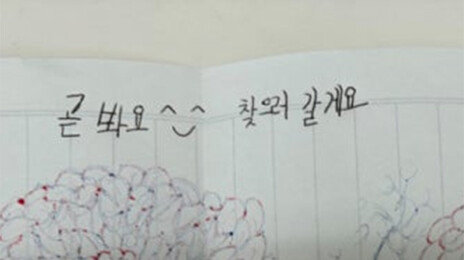 곧 봐요 ^_^ 찾으러 갈게요